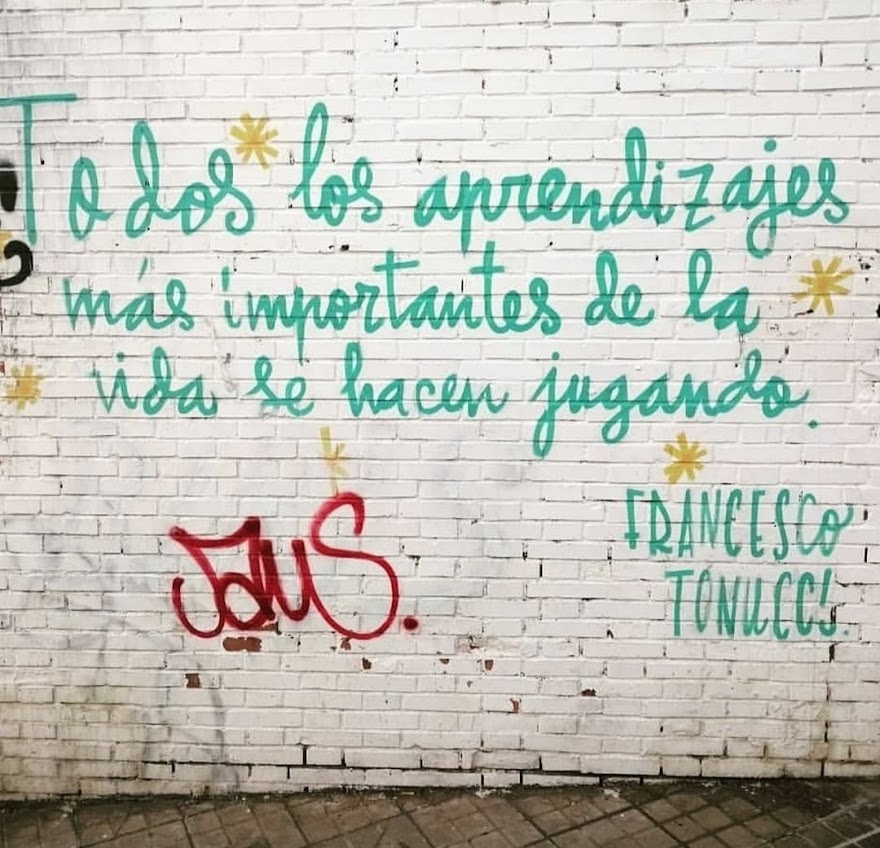 Todos los aprendizajes
más importantes de la
vida se hacen jugando.
FRANCESCO
TONUCCI.